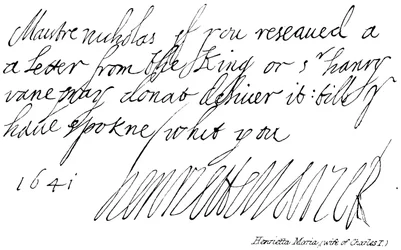 Maistre nicholas if you reseaued a
a Letter from the King or sr hanry
vane pray donat deliuer it: till y
haue spokne whit you
1641
Henriette Marie R
Henrietta Maria (wife of Charles I.)